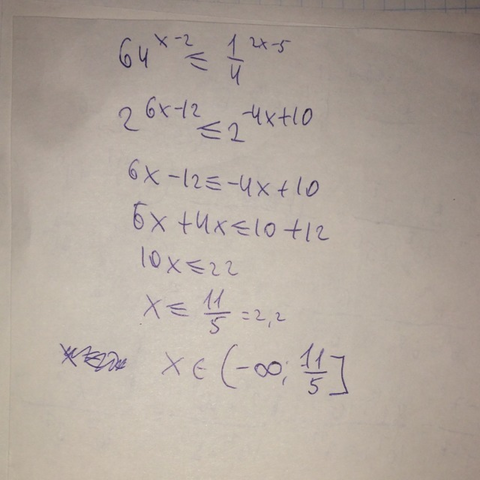 64^{x-2} ≤ \frac{1}{4}^{2x-5}
2^{6x-12} ≤ 2^{-4x+10}
6x - 12 ≤ -4x + 10
6x + 4x ≤ 10 + 12
10x ≤ 22
x ≤ \frac{11}{5} = 2,2
x ∈ (-∞; \frac{11}{5}]